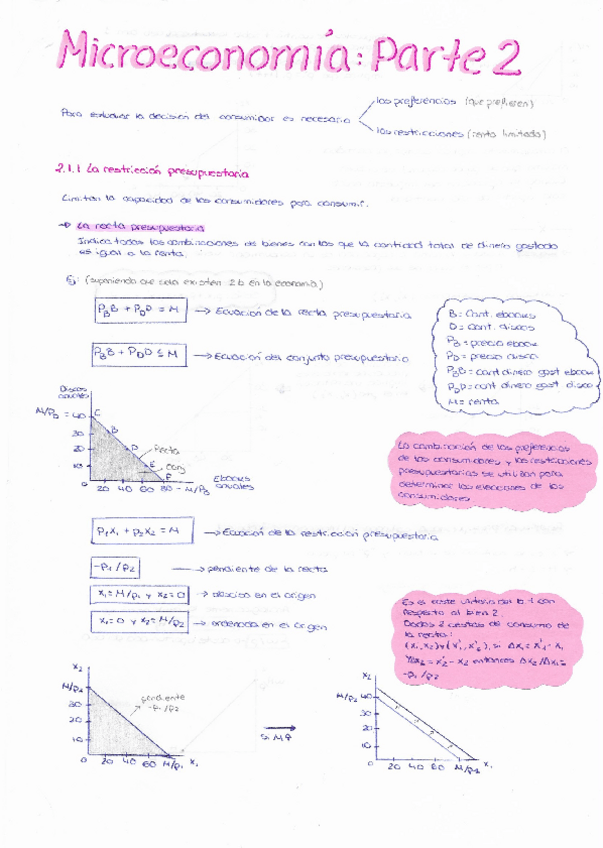 Microeconomía: Parte 2
Para estudiar la decisión del consumidor es necesario
las preferencias (que prefieren)
las restricciones (renta limitada)
2.1.1 La restricción presupuestaria
Limitan la capacidad de los consumidores para consumir.
→ La recta presupuestaria
Indica todas las combinaciones de bienes con las que la cantidad total de dinero gastado
es igual a la renta.
Ej: (suponiendo que solo existen 2 b en la economía)
PBB + PDD = M → Ecuación de la recta presupuestaria
PBB + PDD ≤ M → Ecuación del conjunto presupuestario
B = Cant. ebooks
D = cant. discos
PB = precio ebook
PD = precio disco
PBB = cant dinero gast ebook
PDD = cant dinero gast disco
M = renta
Discos
anuales
M/PD = 40
30
20
10
0
C
B
D
E
F
Recta
Conj
20 40 60 80 = M/PB
Ebooks
anuales
La combinación de las preferencias
de los consumidores y las restricciones
presupuestarias se utilizan para
determinar las elecciones de los
consumidores
P1X1 + P2X2 = M → Ecuación de la restricción presupuestaria
-P1/P2 → pendiente de la recta
X1 = M/P1 y X2 = 0 → abscisa en el origen
X1 = 0 y X2 = M/P2 → ordenada en el origen
Es el coste unitario del b.1 con
respecto al bien 2.
Dadas 2 cestas de consumo de
la recta:
entonces ΔX2/ΔX1 =
-P1/P2
X2
M/P2
30
20
10
0
pendiente
-P1/P2
20 40 60 M/P1 X1
→
Si M↑
X2
M/P2 40
30
20
10
0
20 40 60 M/P1 X1